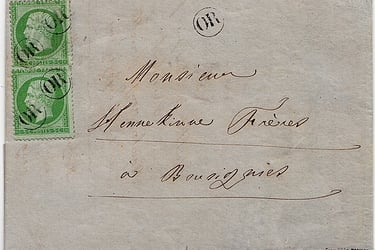 OR OR
OR
OR OR
Monsieur
Hennekinne Frères
à Bousignies